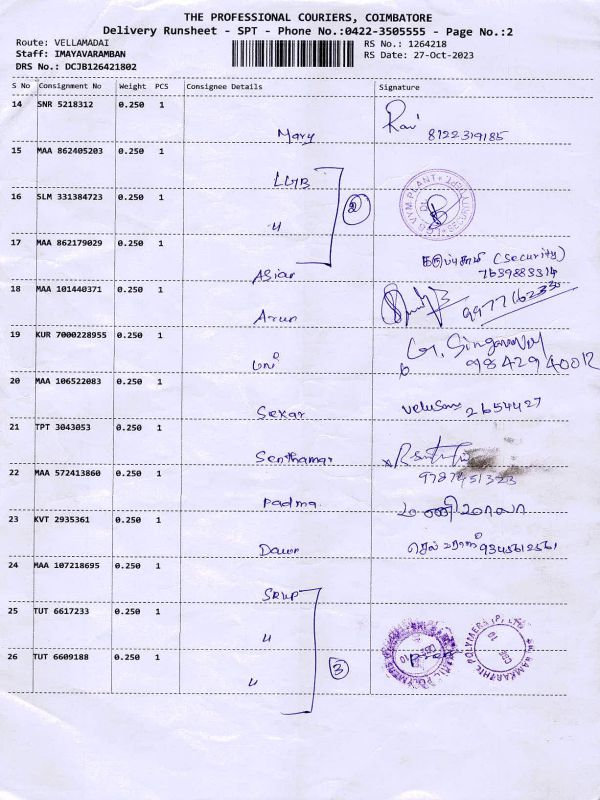 THE PROFESSIONAL COURIERS, COIMBATORE
Delivery Runsheet - SPT - Phone No.:0422-3505555 - Page No.:2
Route: VELLAMADAI RS No.: 1264218
Staff: IMAYAVARAMBAN RS Date: 27-Oct-2023
DRS No.: DCJB126421802
S No Consignment No Weight PCS Consignee Details Signature
14 SNR 5218312 0.250 1
Mary Ravi 8122319185
15 MAA 862405203 0.250 1
LGB
16 SLM 331384723 0.250 1 2
"
17 MAA 862179029 0.250 1
Asian (Security)
7639883314
18 MAA 101440371 0.250 1
Arun 9977162330
19 KUR 7000228955 0.250 1
மணி G. Singaravel
9842940012
20 MAA 106522083 0.250 1
Sekar Velusamy 2654427
21 TPT 3043053 0.250 1
Senthamar
22 MAA 572413860 0.250 1 9787451323
Padma மணிமாலா
23 KVT 2935361 0.250 1
செல்வராஜ் 9345612561
24 MAA 107218695 0.250 1
SRKP
25 TUT 6617233 0.250 1
"
26 TUT 6609188 0.250 1 3
"